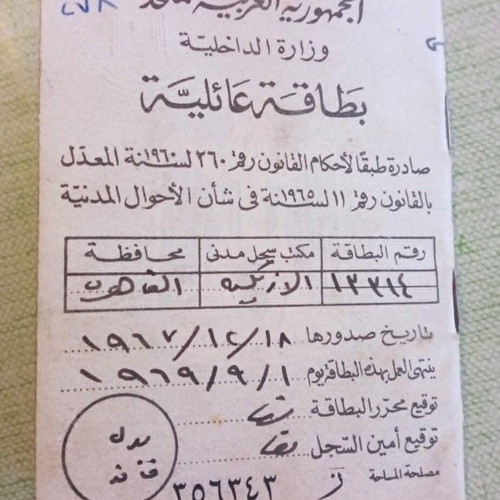 الجمهورية العربية المتحدة
وزارة الداخلية
بطاقة عائلية
صادرة طبقا لأحكام القانون رقم ٢٦٠ لسنة ١٩٦٠ المعدل
بالقانون رقم ١١ لسنة ١٩٦٥ فى شأن الأحوال المدنية
رقم البطاقة مكتب سجل مدنى محافظة
١٣٣١٤ الازبكية القاهرة
تاريخ صدورها ١٩٦٧/١٢/١٨
ينتهى العمل بهذه البطاقة يوم ١٩٦٩/٩/١
توقيع محرر البطاقة
توقيع أمين السجل
بدل
مصلحة المساحة
٣٥٦٣٤٣